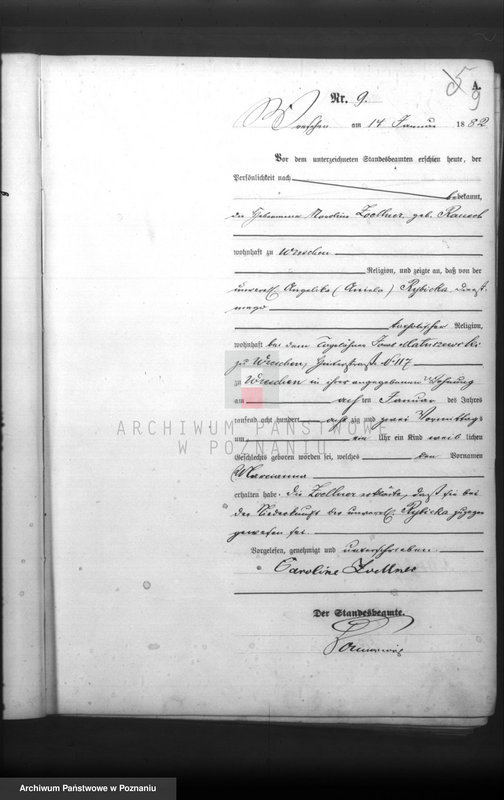 A.
9
Nr. 9.
Wreschen am 14 Januar 1882
Vor dem unterzeichneten Standesbeamten erschien heute, der
Persönlichkeit nach
bekannt,
die Hebeamme Karoline Zoellner geb. Rausch
wohnhaft zu Wreschen
Religion, und zeigte an, daß von der
unverehl. Angelika (Aniela) Rybicka, Dienst
magd
katholischer Religion,
wohnhaft bei dem Tagelöhner
zu Wreschen, N. 117
zu Wreschen in ihrer angegebenen Wohnung
am achten Januar des Jahres
tausend acht hundert achtzig und zwei Vormittags
um ein Uhr ein Kind weiblichen
Geschlechts geboren worden sei, welches den Vornamen
Marianna
erhalten habe. Die Zoellner erklärte, daß sie bei
der Niederkunft der unverehl. Rybicka zugegen
gewesen sei.
Vorgelesen, genehmigt und unterschrieben.
Caroline Zoellner
Der Standesbeamte.
ARCHIWUM PAŃSTWOWE
W POZNANIU
Archiwum Państwowe w Poznaniu